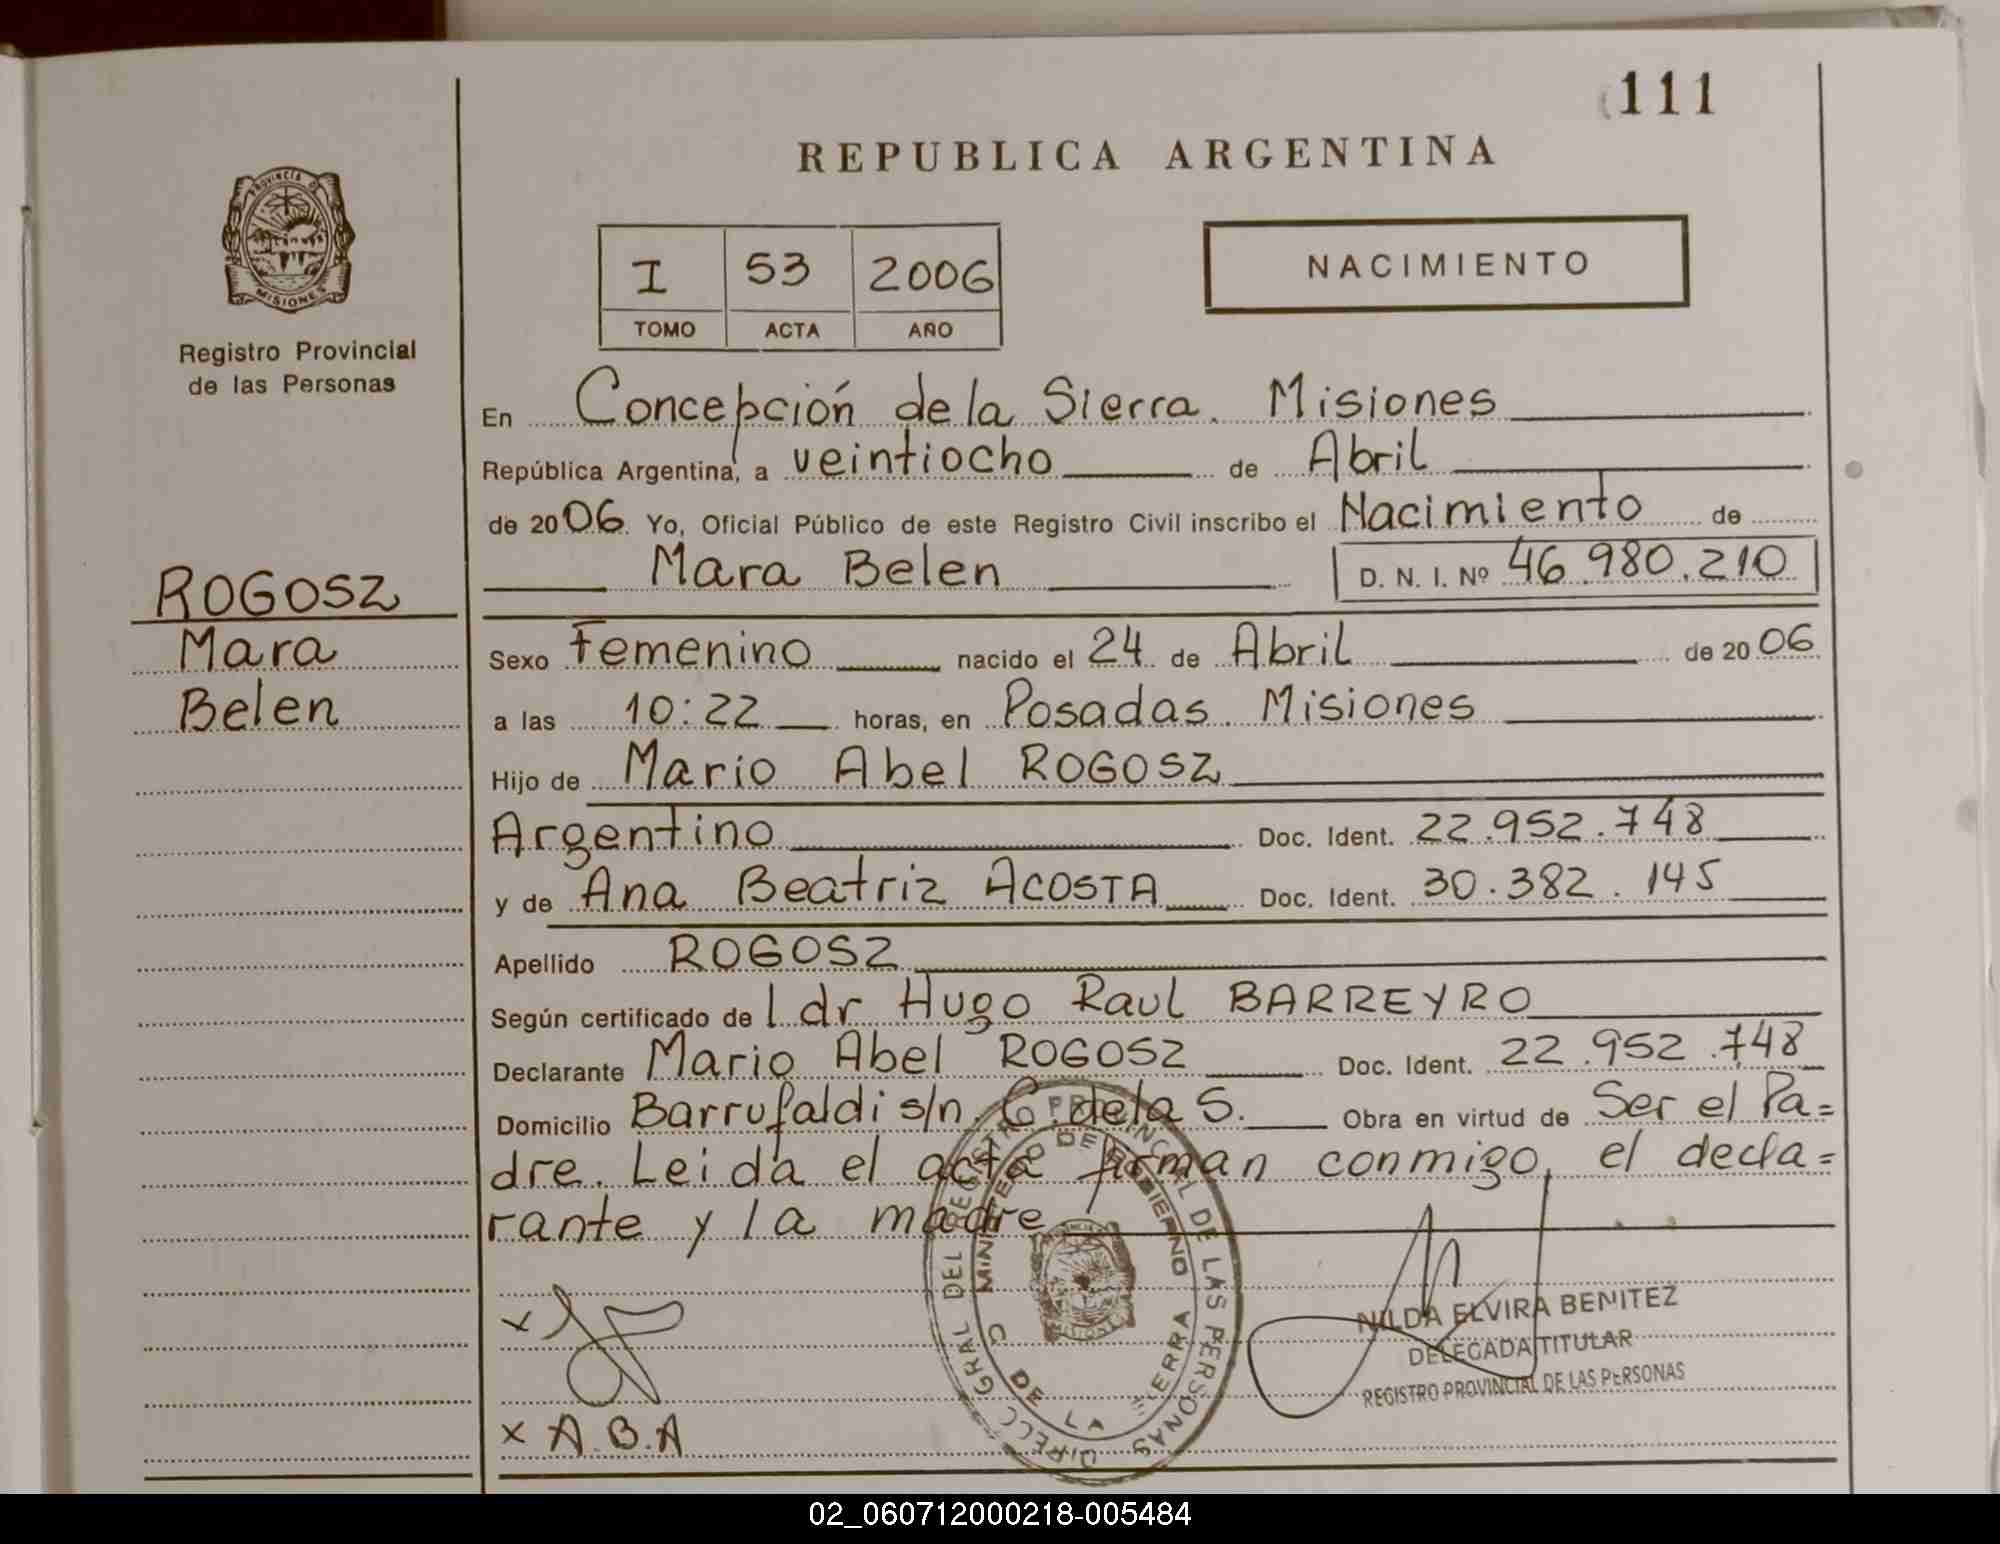 111
REPUBLICA ARGENTINA
PROVINCIA DE
MISIONES
Registro Provincial
de las Personas
I 53 2006
TOMO ACTA AÑO
NACIMIENTO
En Concepción de la Sierra. Misiones
República Argentina, a veintiocho de Abril
de 2006. Yo, Oficial Público de este Registro Civil inscribo el Nacimiento de
Mara Belen D. N. I. Nº 46.980.210
ROGOSZ
Mara
Belen
Sexo Femenino nacido el 24 de Abril de 2006
a las 10:22 horas, en Posadas. Misiones
Hijo de Mario Abel ROGOSZ
Argentino Doc. Ident. 22.952.748
y de Ana Beatriz ACOSTA Doc. Ident. 30.382.145
Apellido ROGOSZ
Según certificado de l dr Hugo Raul BARREYRO
Declarante Mario Abel ROGOSZ Doc. Ident. 22.952.748
Domicilio Barrufaldi s/n. C. de la S. Obra en virtud de Ser el Pa=
dre. Leida el acta firman conmigo, el decla=
rante y la madre
DIRECC GRAL DEL REGISTRO PROVINCIAL DE LAS PERSONAS
MINISTERIO DE GOBIERNO
C DE LA SIERRA
NILDA ELVIRA BENITEZ
DELEGADA TITULAR
REGISTRO PROVINCIAL DE LAS PERSONAS
x
x A.B.A
02_060712000218-005484